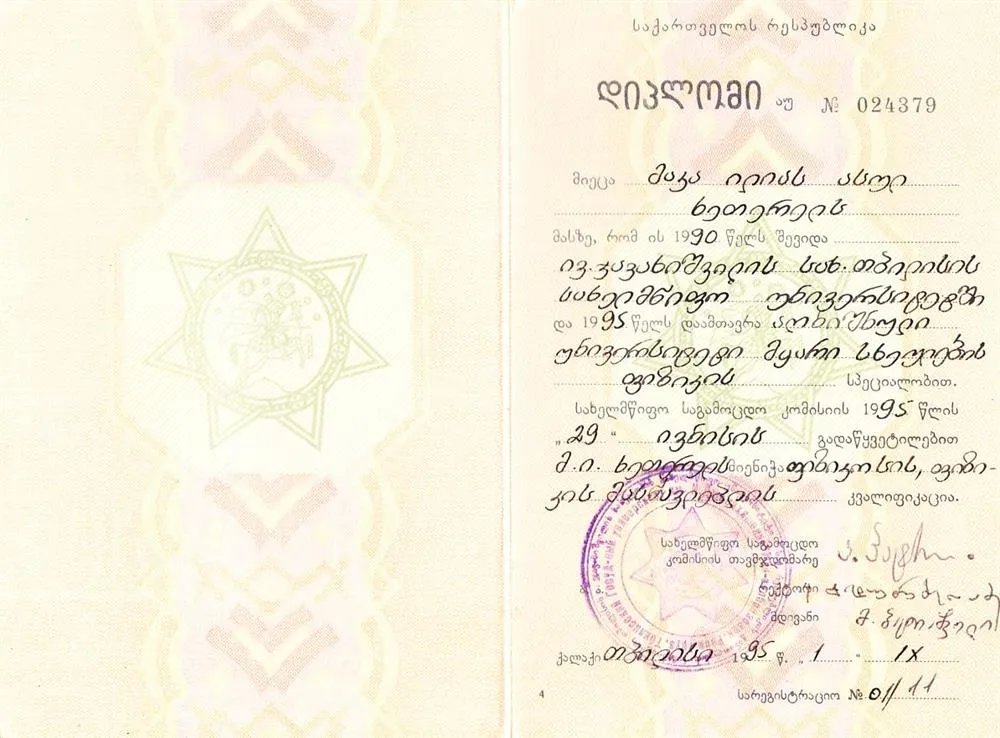 საქართველოს რესპუბლიკა
დიპლომი აუ № 024379
მიეცა მაკა ილიას ასულ
ხეთერელს
მასზე, რომ ის 1990 წელს შევიდა
ივ. ჯავახიშვილის სახ. თბილისის
სახელმწიფო უნივერსიტეტში
და 1995 წელს დაამთავრა აღნიშნული
უნივერსიტეტი მყარი სხეულების
ფიზიკის სპეციალობით.
სახელმწიფო საგამოცდო კომისიის 1995 წლის
„29“ ივნისის გადაწყვეტილებით
მ. ი. ხეთერელს მიენიჭა ფიზიკოსის, ფიზი-
კის მასწავლებლის კვალიფიკაცია.
სახელმწიფო საგამოცდო
კომისიის თავმჯდომარე
რექტორი
მდივანი
ქალაქი თბილისი 1995 წ. „1“ IX
4 სარეგისტრაციო № 01/11